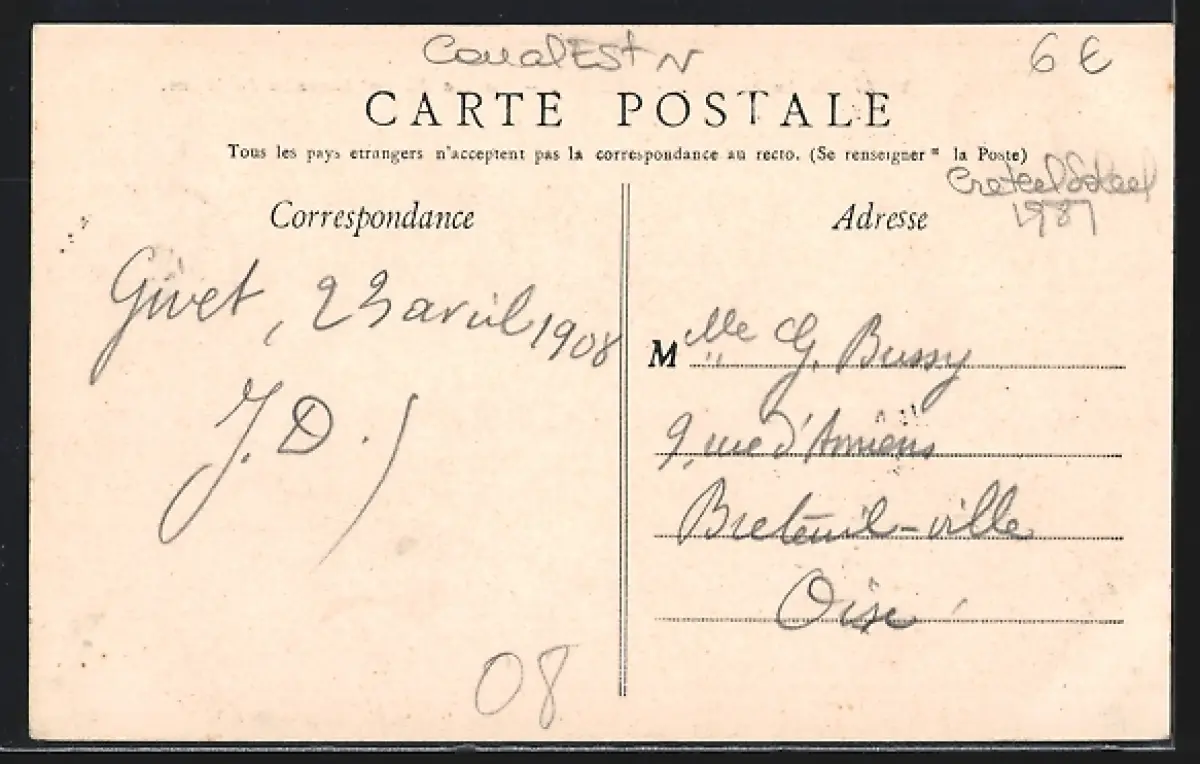 Canal Est N
6 €
CARTE POSTALE
Tous les pays etrangers n'acceptent pas la correspondance au recto. (Se renseigner à la Poste)
Creteel
1987
Correspondance
Adresse
Givet, 23 avril 1908
J. D.
M lle G. Bussy
9, rue d'Amiens
Breteuil-ville
Oise
08